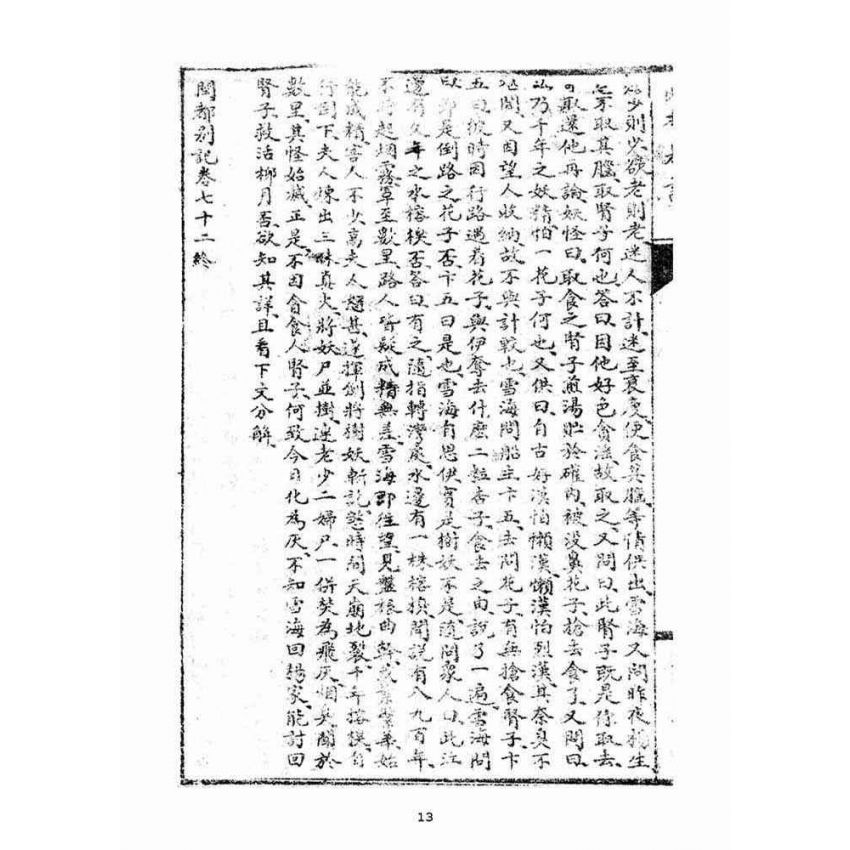 少則少欲老則老迷人不計迷至衰虔便食其臟等情供出雪海又問昨夜楊生
不取其腦取腎子何也答曰因他好色貪淫故取之又問曰此腎子既是待取去
可取還他再論妖怪曰取食之腎子煎湯貯於確內被没鼻花子搶去食了又問曰
乃千年之妖精怕一花子何也又供曰自古好漢怕懶漢懶漢怕列漢其奈臭不
聞又因望人收納故不與計較也雪海問船主卞五去問花子有無搶食腎子卞
五曰彼時因行路遇有花子與伊奪去什麼二粒杏子食去之由說了一遍雪海問
曰即是倒路之花子否卞五曰是也雪海自思伊實是樹妖不是隨問衆人曰此江
邊有久年之水榕楔否答曰有之隨指轉灣處水邊有一株榕楨聞説有八九百年
不時起烟霧罩至數里路人皆疑成精無差雪海即往望見盤根曲幹茂葉繁華始
能成精害人不少高夫人怒甚遂揮劍將樹妖斬訖愍時間天崩地裂千年榕楔自
行倒下夫人煉出三昧真火將妖尸並樹連老少二婦尸一併焚為飛灰烟臭聞於
數里其怪始滅正是不因會食人腎子何致今日化為灰不知雪海回楊家能討回
腎子救活柳月否欲知其詳且看下文分解
閩都别記卷七十二終
13